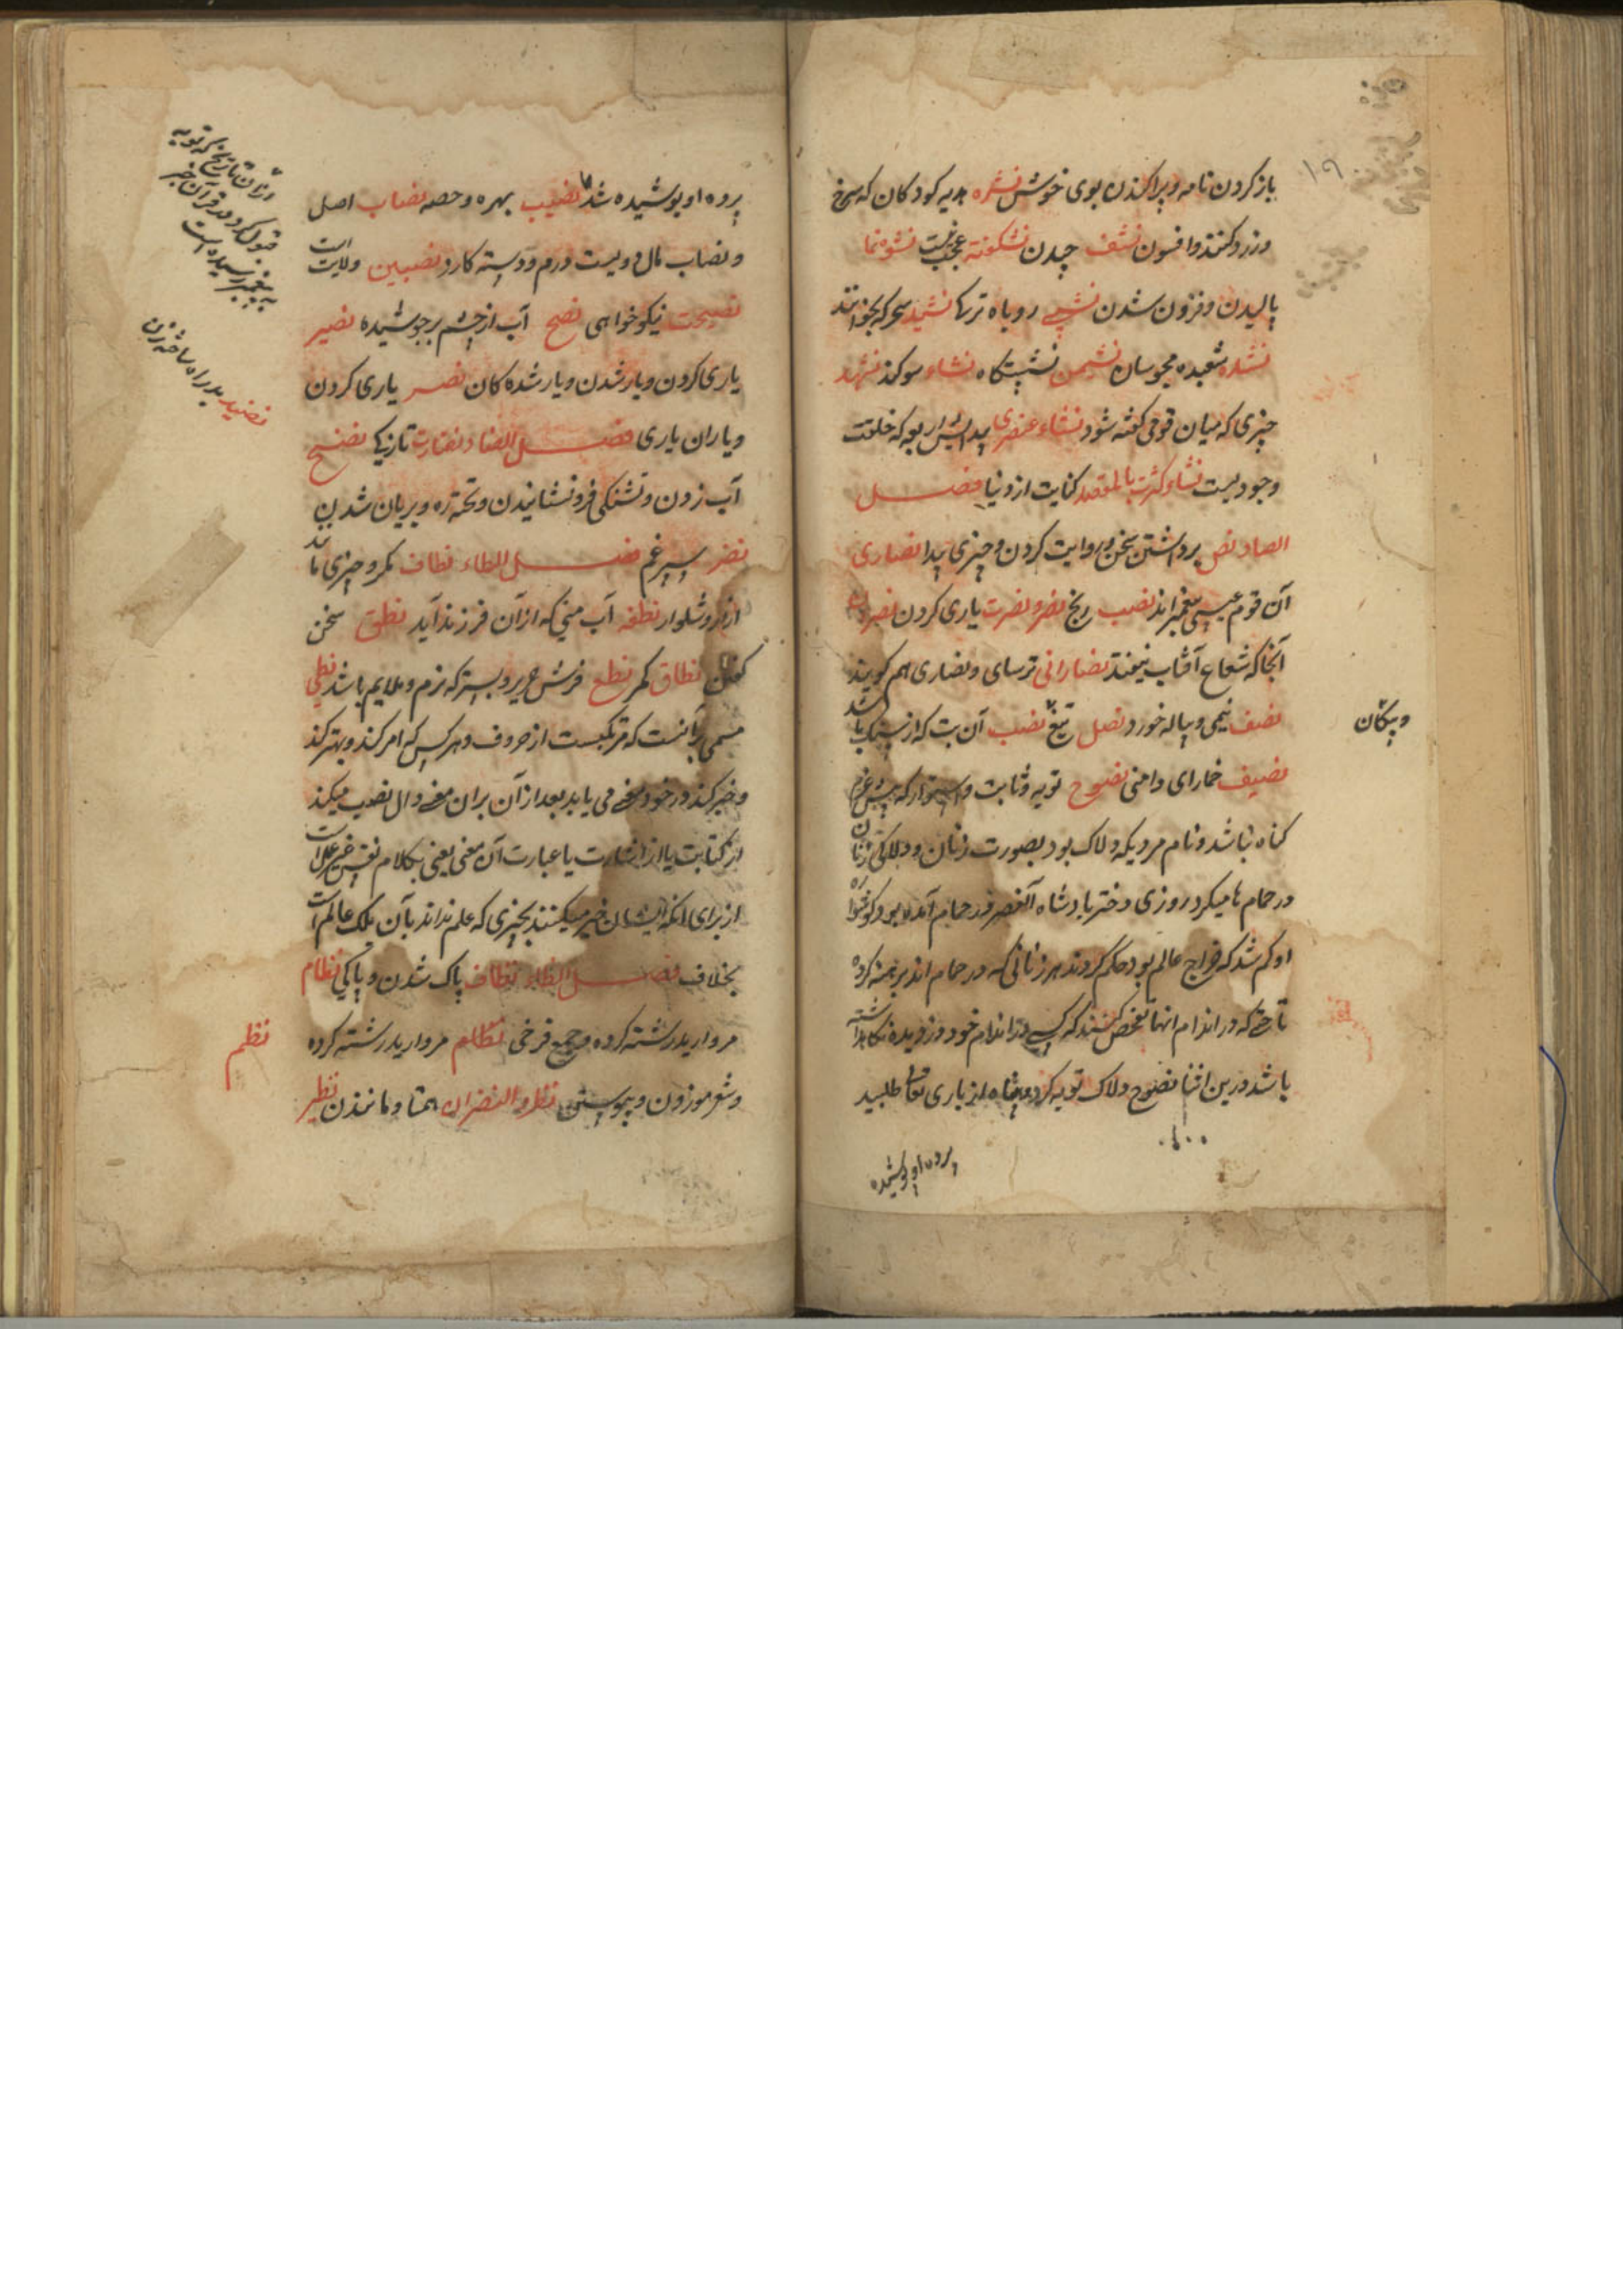 ۱۹
باز کردن نامه و پراکندن بوی خوش نشره هدیه کودکان که سرخ
و زرد کنند و افسون نشف چیدن نشکفته عجب نیست نشو نما
بالیدن و فزون شدن روباه ترکها نشید سحر که بخوانند
نشده شعبده مجوسان نشیمن نشستگاه نشاء سوکند
چیزی که میان قومی گفته شود نشاء عنصری که خلقت
وجودیست نشاء کثرت کنایت از دنیا فصل
الصاد نص برداشتن سخن و روایت کردن و چیزی پیدا نصاری
آن قوم عیسی پیغمبراند نصب رنج نصر و نصرت یاری کردن
آنجا که شعاع آفتاب نیفتد نصارانی ترسای و نصاری هم گویند
نصف نیمی و پیاله خورد نصل تیغ نصب آن بت که از سنگ باشد
و پیکان
نصیف خمارای دامنی نصوح توبه و ثابت و استوار که
گناه نباشد و نام مردیکه دلاک بود بصورت زنان و دلاکی زنان
در حمام ها میکرد روزی دختر پادشاه آلعصر در حمام آمده بود گوشواره
او گم شد که خراج عالم بود حکم کردند هر زنانی که در حمام اند برهنه کرده
تا رختی که در اندام انها تفحص کنند که کسی در اندام خود دزدیده نگاه داشته
باشد درین اثنا نصوح دلاک توبه کرد و پناه از باری تعالی طلبید
پرده او پوشیده
پرده او پوشیده شد نصیب بهره و حصه نصاب اصل
و نصاب مال دویست درم و دسته کارد نصیبین ولایت است
نصیحت نیکوخواهی نضح آب از چشم برجوشیده نصیر
یاری کردن و یار شدن و یار شده کان نصر یاری کردن
و یاران یاری فصل الضاد نضارت تازیکی نضح
آب زدن و تشنگی فرونشانیدن و بریان شدن
نضر سپرغم فصل الطاء نطاف مکر و چیزی ماند
ازار و شلوار نطفه آب منی که از آن فرزند آید نطق سخن
گفتن نطاق کمر نطع فرش حریر و بستر که نرم و ملایم باشد نطی
مسمی بآنست که مرکبست از حروف و هر کس که امر کند و بهتر کند
و خبر کند در خود معنی می یابد بعد از آن بران معنی دال نصب میکند
از کتابت یا از اشارت یا عبارت آن معنی یعنی بکلام نفس غیر علم است
از برای انکه ایشان خبر میکنند بچیزی که علم نداند بآن بلک عالم است
بخلاف فصل الظاء نظاف پاک شدن و پاکی نظام
مروارید رشته کرده و جمع فرخی نظام مروارید رشته کرده
نظم
و شعر موزون و پیوستن نظر و النضران همتا و مانندن نظیر
وزان تاریخ که توبه
قبول کرد در قرآن خبر
به پیغمبر رسیده است
نضید